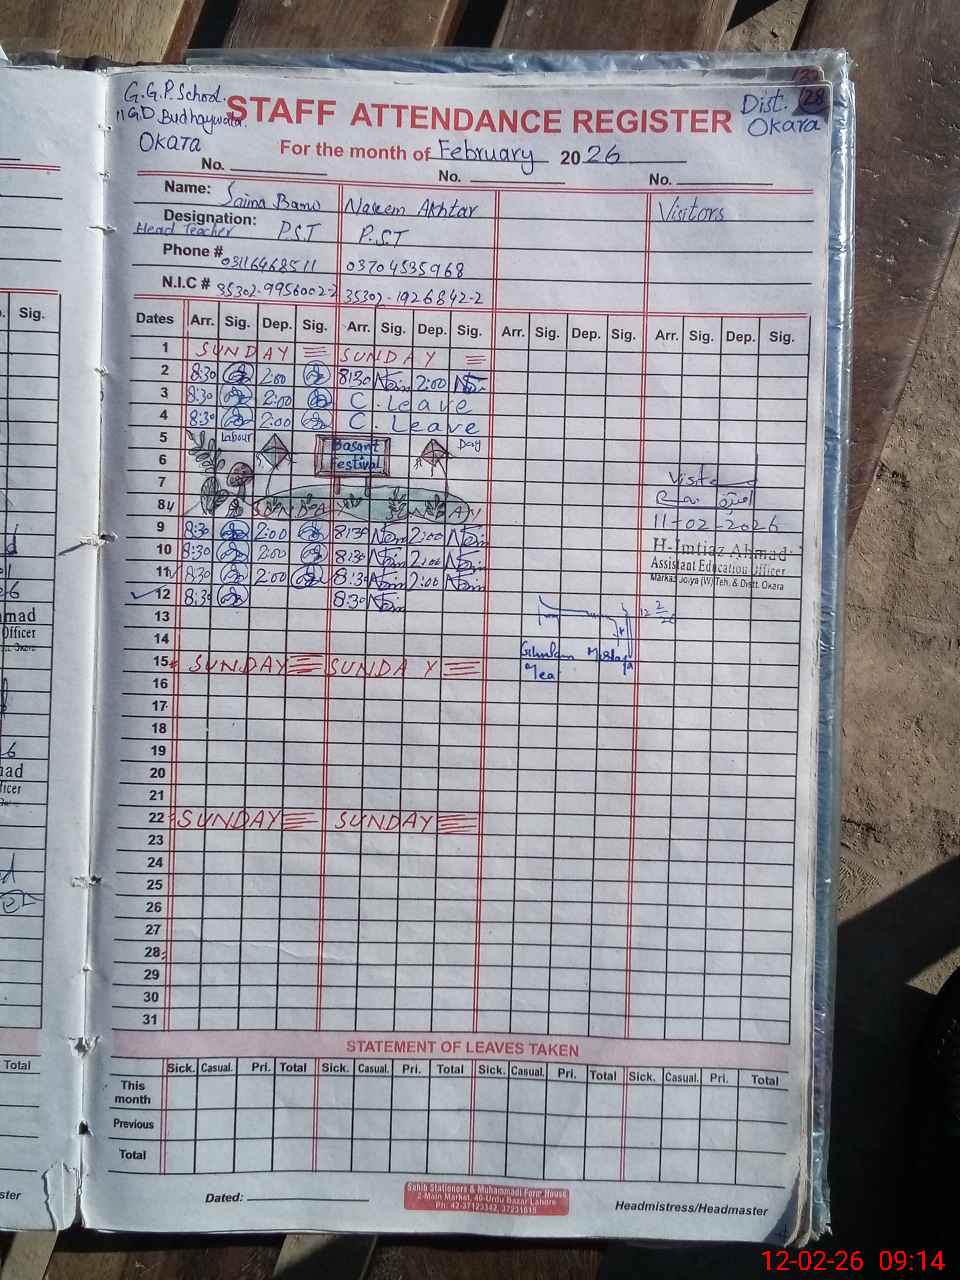 G.G.P. School.
11 G.D Budhaywala.
OKARA
Dist.
Okara
28
STAFF ATTENDANCE REGISTER
For the month of February 2026
No. No. No.
Name: Saima Bano Naseem Akhtar Visitors
Designation: Head Teacher P.S.T P.S.T
Phone # 03116468511 03704535968
N.I.C # 35302-9956002-2 35302-1926842-2
Dates Arr. Sig. Dep. Sig. Arr. Sig. Dep. Sig. Arr. Sig. Dep. Sig. Arr. Sig. Dep. Sig.
1 SUNDAY SUNDAY
2 8:30 2:00 8:30 2:00
3 8:30 2:00 C. Leave
4 8:30 2:00 C. Leave
5 Labour Day
Basant
6 Festival
7
8 SUNDAY SUNDAY
9 8:30 2:00 8:30 2:00
10 8:30 2:00 8:30 2:00
11 8:30 2:00 8:30 2:00
12 8:30 8:30
13
14
15 SUNDAY SUNDAY
16
17
18
19
20
21
22 SUNDAY SUNDAY
23
24
25
26
27
28
29
30
31
11-02-2026
H-Imtiaz Ahmad
Assistant Education Officer
Markaz Joiya (W) Teh. & Distt. Okara
12 2/26
Ghulam Murtaza
Mea
STATEMENT OF LEAVES TAKEN
Sick. Casual. Pri. Total Sick. Casual. Pri. Total Sick. Casual. Pri. Total Sick. Casual. Pri. Total
This month
Previous
Total
Dated:
Sahib Stationers & Muhammadi Form House
2-Main Market, 40-Urdu Bazar Lahore
Ph: 42-37123342, 37231815
Headmistress/Headmaster
Sig.
Officer
Total
12-02-26 09:14